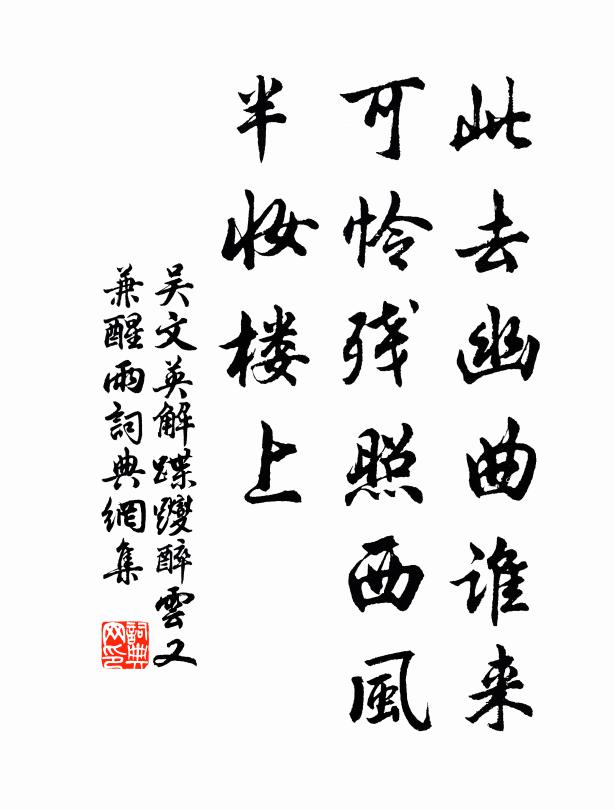 此去幽曲谁来
可怜残照西風
半妆楼上
吴文英解蹀躞醉雲又
兼醒雨詞典網集
詞典
网印